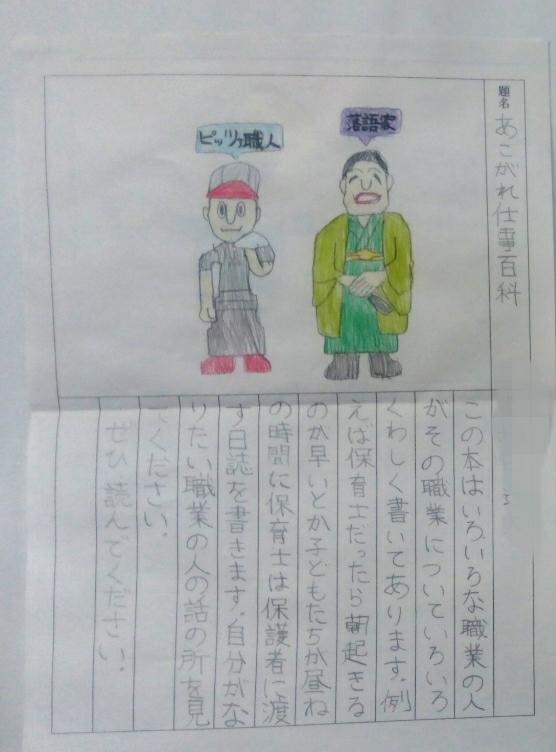 題名 あこがれ仕事百科
落語家
ピッツァ職人
この本はいろいろな職業の人
がその職業についていろいろ
くわしく書いてあります。例
えば保育士だったら朝起きる
のが早いとか子どもたちが昼ね
の時間に保育士は保護者に渡
す日誌を書きます。自分がな
りたい職業の人の話の所を見
てください。
ぜひ読んでください。